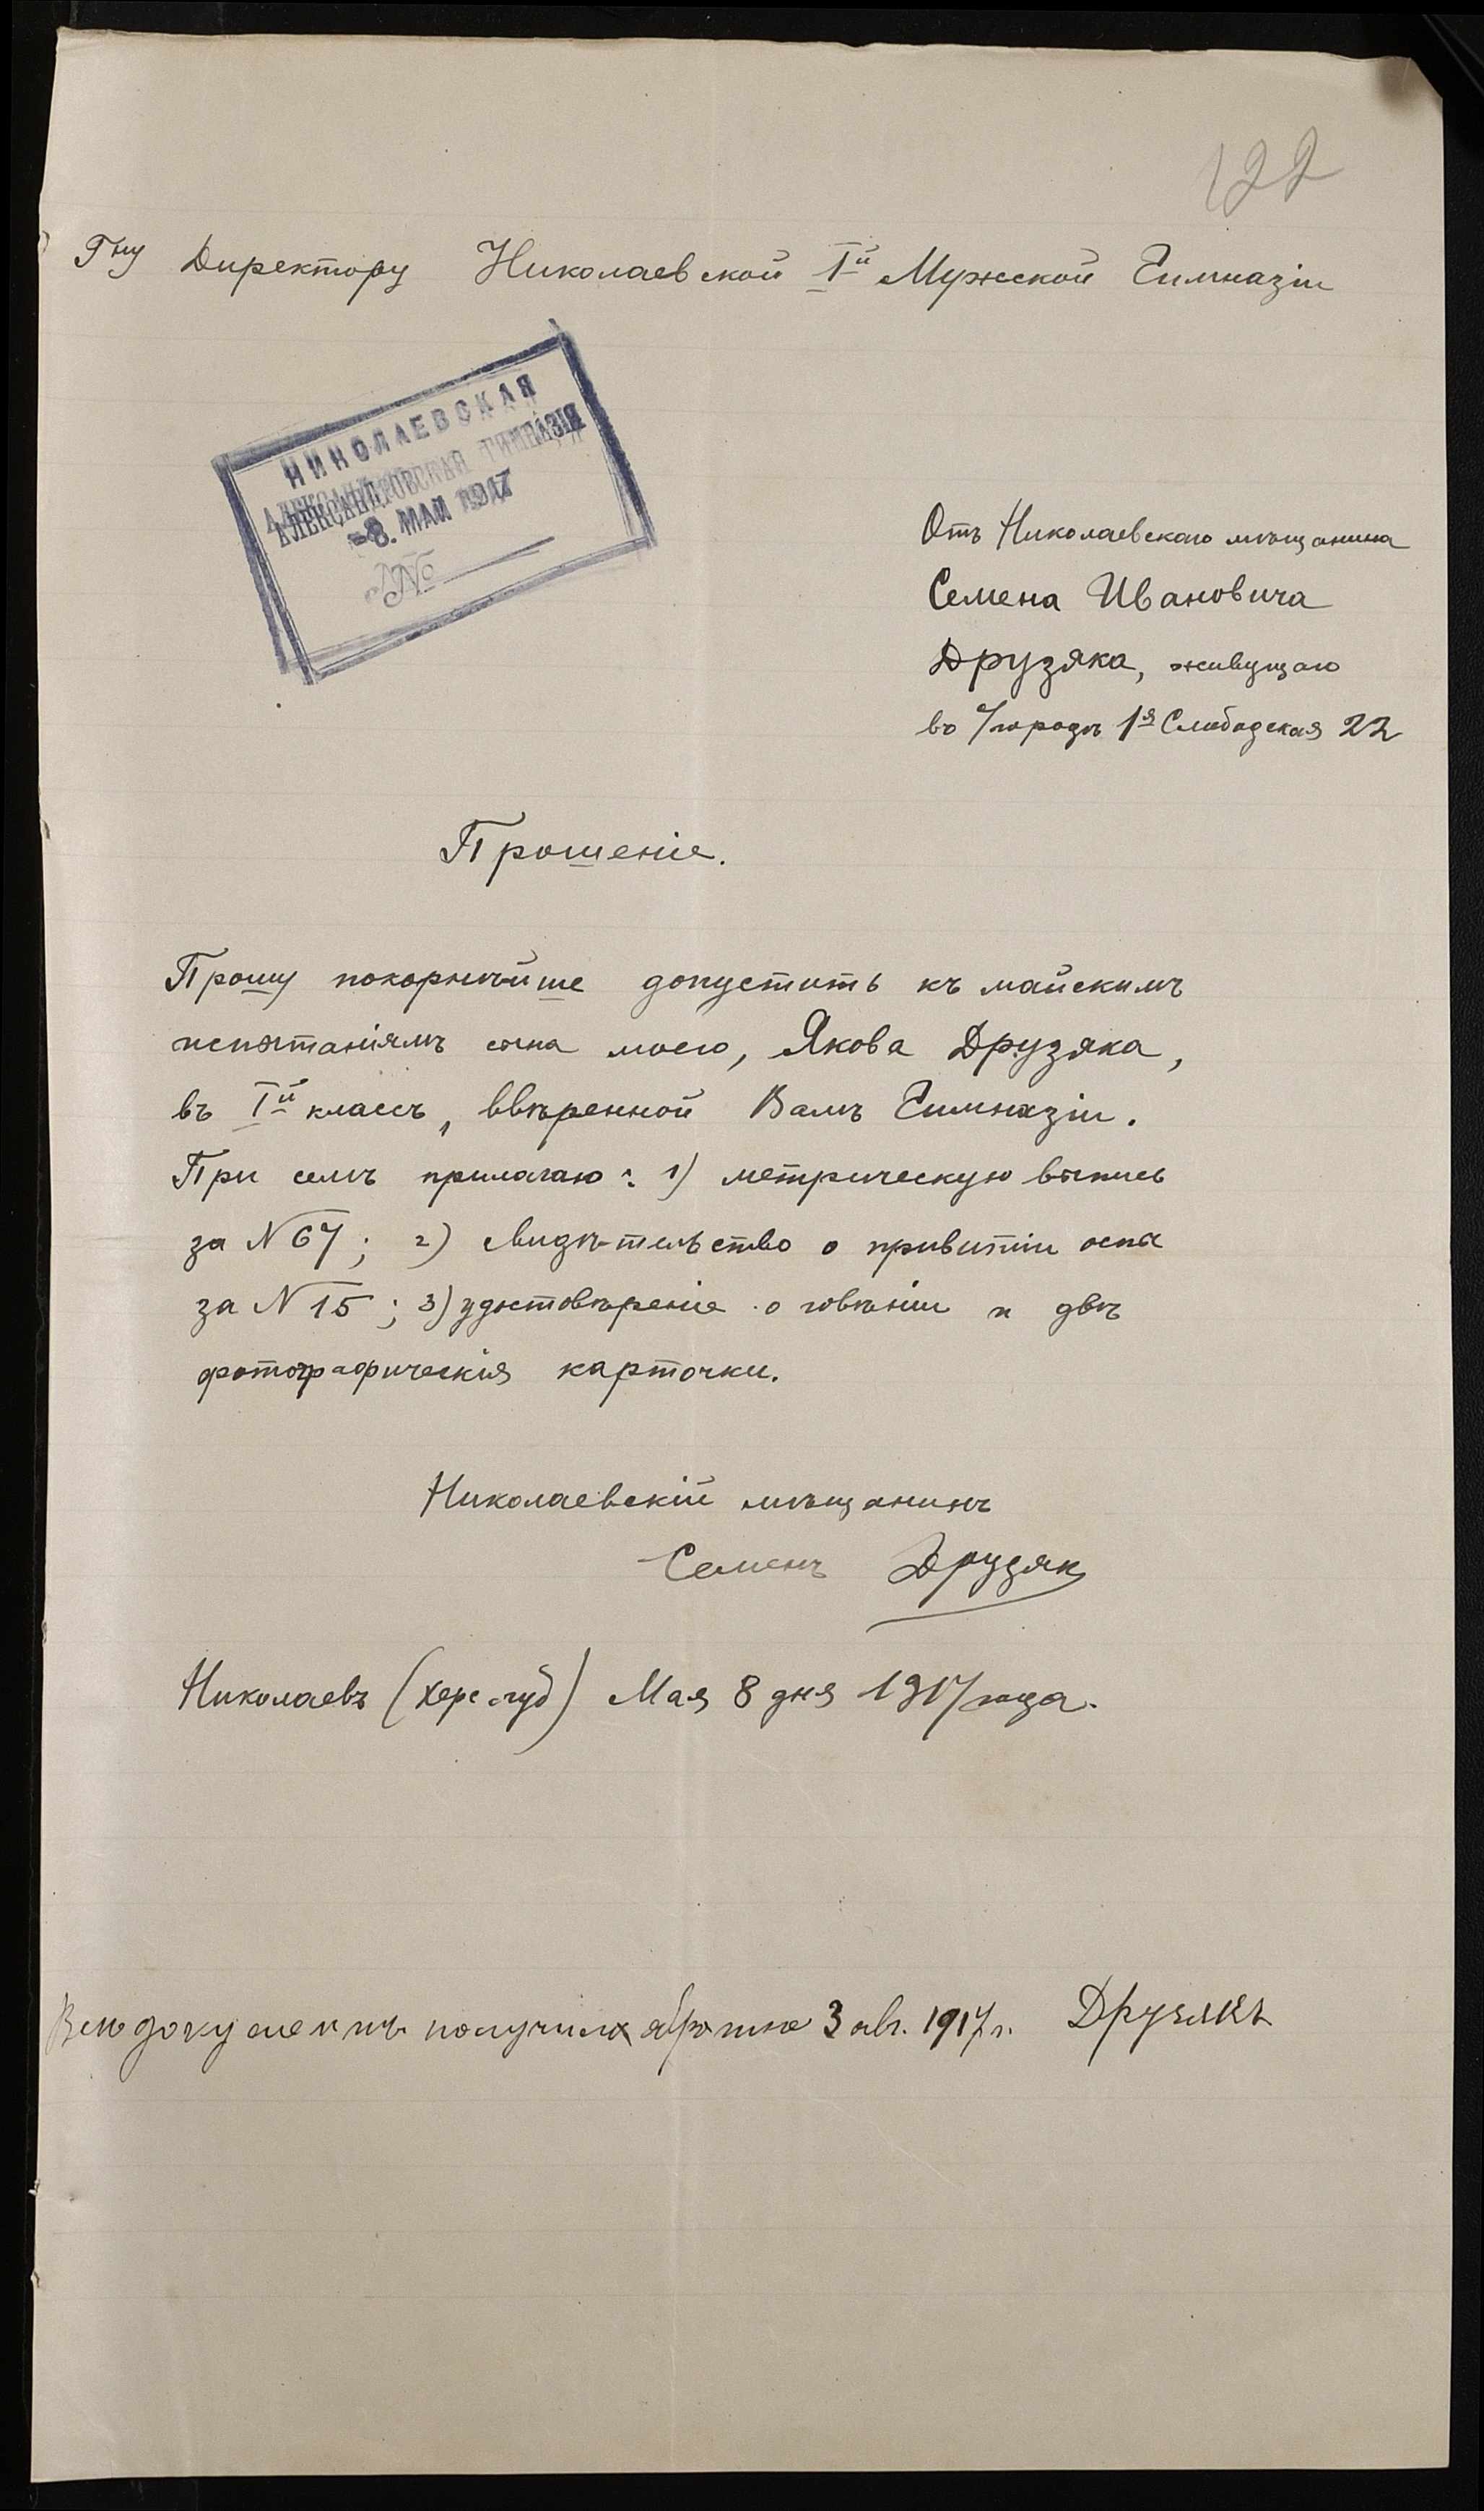 122
Гну Директору Николаевской Iй Мужской Гимназiи
НИКОЛАЕВСКАЯ
АЛЕКСАНДРОВСКАЯ ГИМНАЗIЯ
-8. МАЙ 1917
№
Отъ Николаевскаго мѣщанина
Семена Ивановича
Друзяка, живущаго
въ городѣ 1я Слободская 22
Прошенiе.
Прошу покорнѣйше допустить къ майскимъ
испытанiямъ сына моего, Якова Друзяка,
въ Iй классъ, ввѣренной Вамъ Гимназiи.
При семъ прилагаю: 1) метрическую выпись
за N 67; 2) свидѣтельство о привитiи оспы
за N 15; 3) удостовѣренiе о говѣнiи и двѣ
фотографическiя карточки.
Николаевскiй мѣщанинъ
Семенъ Друзяк
Николаевъ (Херс губ) Мая 8 дня 1917 года.
документы получилъ обратно 3 авг. 1917 г. Друзякъ